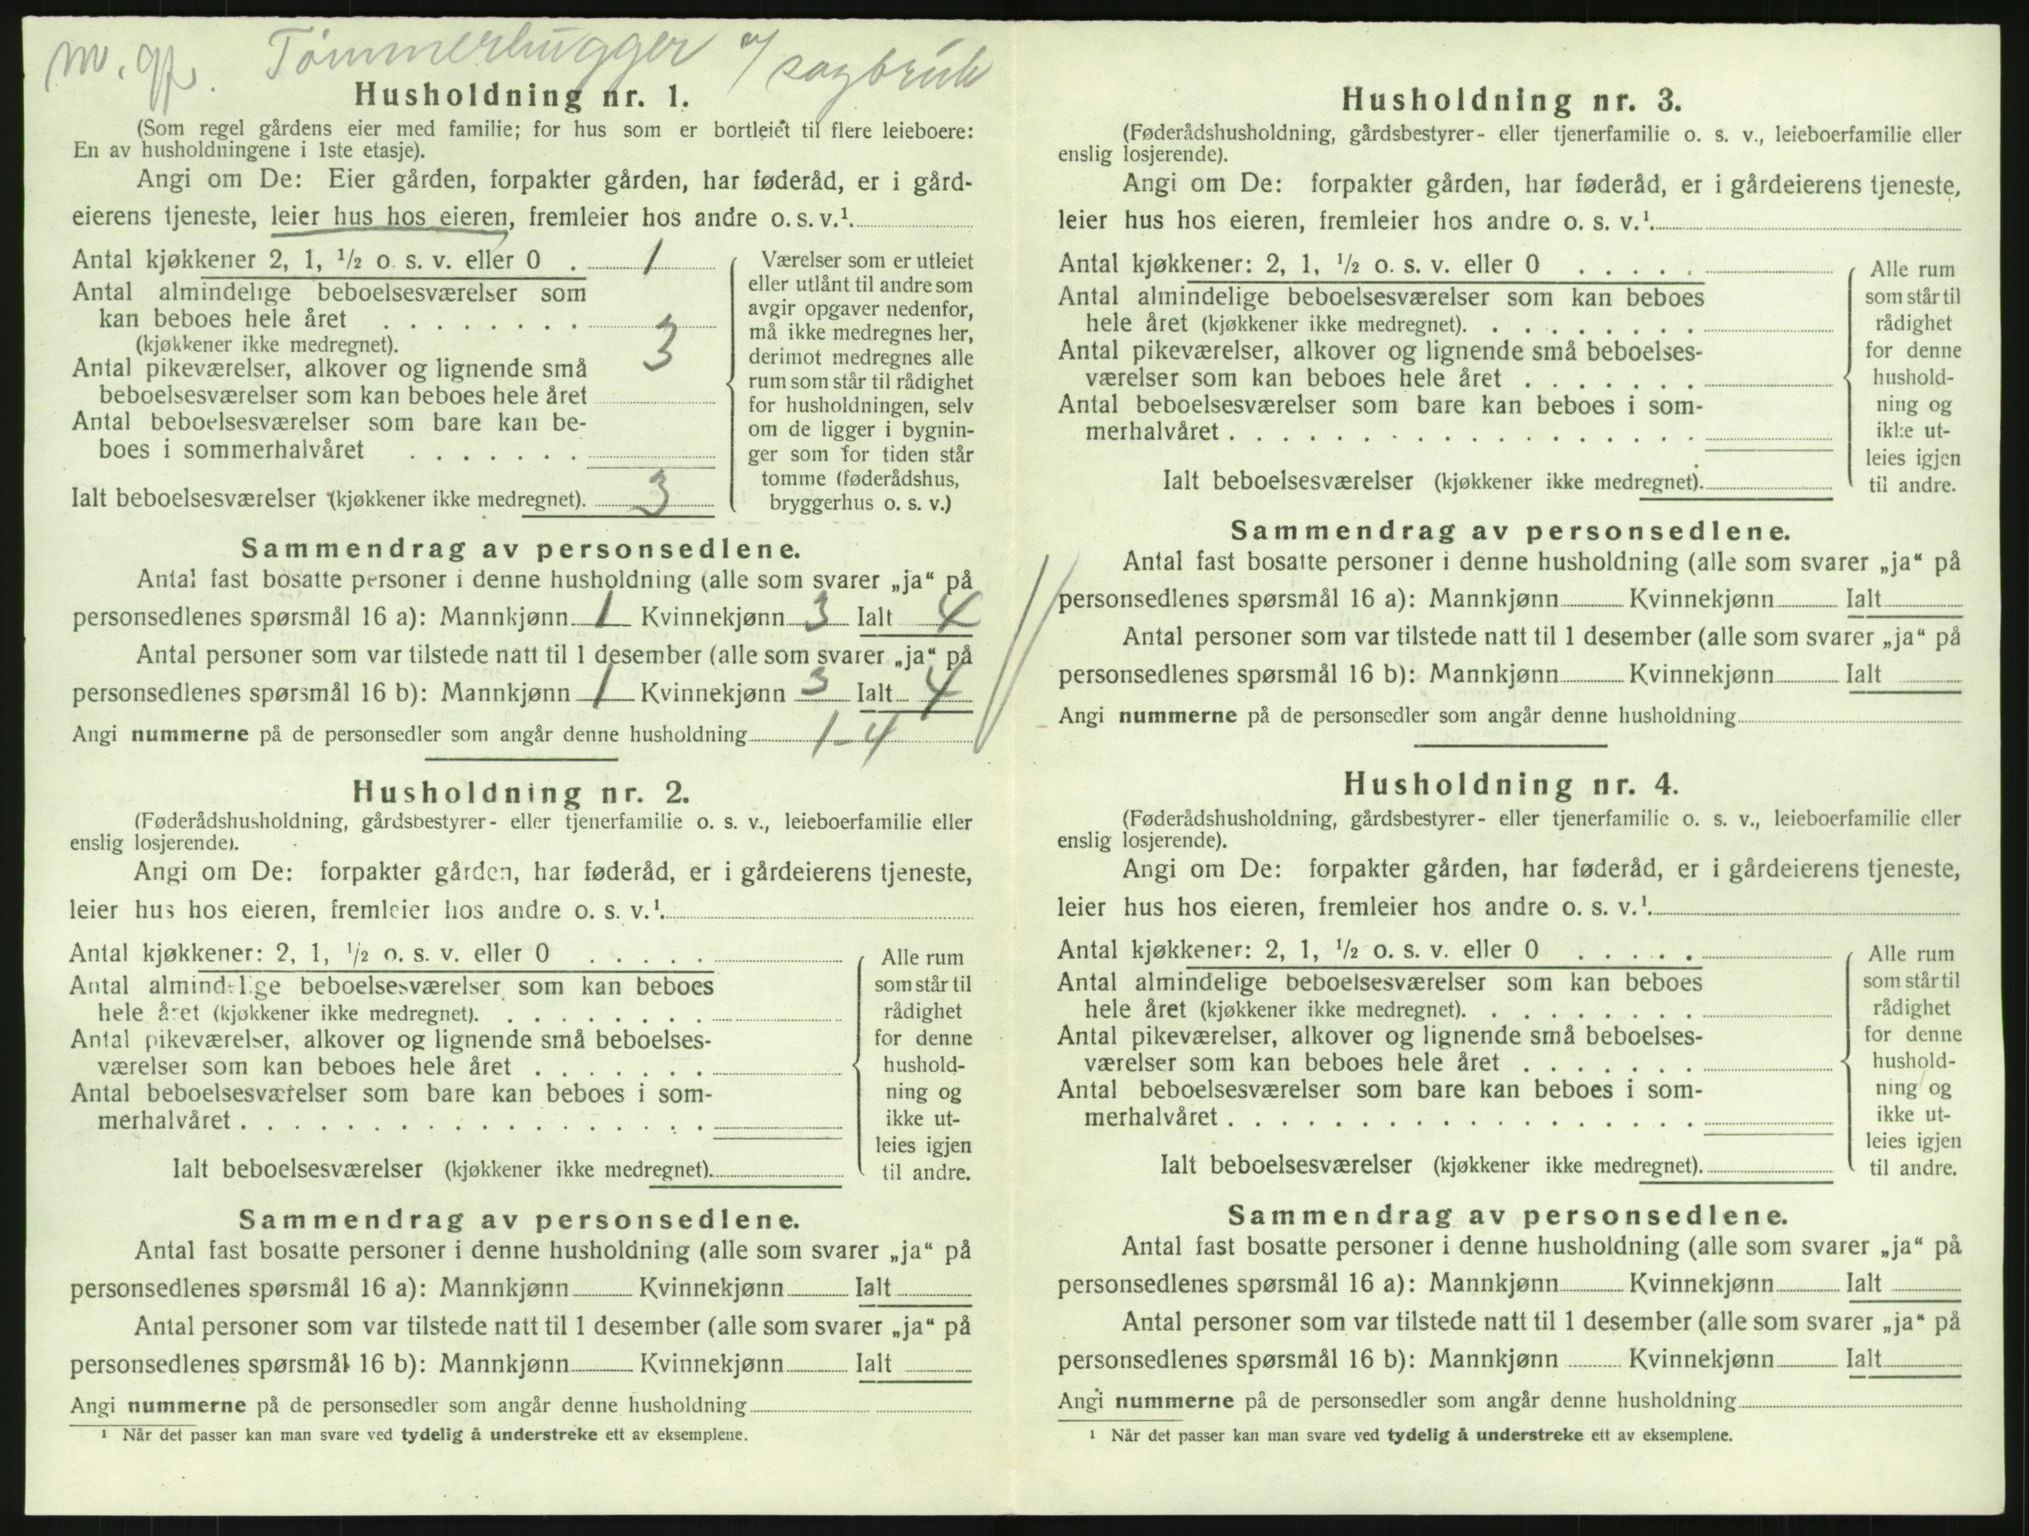 m. gp. Tømmerhugger v/ sagbruk
Husholdning nr. 1.
(Som regel gårdens eier med familie; for hus som er bortleiet til flere leieboere:
En av husholdningene i 1ste etasje).
Angi om De: Eier gården, forpakter gården, har føderåd, er i gård-
eierens tjeneste, leier hus hos eieren, fremleier hos andre o. s. v.¹.
Antal kjøkkener 2, 1, ½ o. s. v. eller 0 . 1
Antal almindelige beboelsesværelser som
kan beboes hele året . . . . . . . . 3
(kjøkkener ikke medregnet).
Antal pikeværelser, alkover og lignende små
beboelsesværelser som kan beboes hele året
Antal beboelsesværelser som bare kan be-
boes i sommerhalvåret . . . . . . .
Ialt beboelsesværelser (kjøkkener ikke medregnet). 3
Værelser som er utleiet
eller utlånt til andre som
avgir opgaver nedenfor,
må ikke medregnes her,
derimot medregnes alle
rum som står til rådighet
for husholdningen, selv
om de ligger i bygnin-
ger som for tiden står
tomme (føderådshus,
bryggerhus o. s. v.)
Sammendrag av personsedlene.
Antal fast bosatte personer i denne husholdning (alle som svarer „ja“ på
personsedlenes spørsmål 16 a): Mannkjønn 1 Kvinnekjønn 3 Ialt 4
Antal personer som var tilstede natt til 1 desember (alle som svarer „ja“ på
personsedlenes spørsmål 16 b): Mannkjønn 1 Kvinnekjønn 3 Ialt 4
Angi nummerne på de personsedler som angår denne husholdning 1-4
Husholdning nr. 2.
(Føderådshusholdning, gårdsbestyrer- eller tjenerfamilie o. s. v., leieboerfamilie eller
enslig losjerende).
Angi om De: forpakter gården, har føderåd, er i gårdeierens tjeneste,
leier hus hos eieren, fremleier hos andre o. s. v.¹.
Antal kjøkkener: 2, 1, ½ o. s. v. eller 0 . . . . .
Antal almindelige beboelsesværelser som kan beboes
hele året (kjøkkener ikke medregnet). . . . . . . . .
Antal pikeværelser, alkover og lignende små beboelses-
værelser som kan beboes hele året . . . . . . .
Antal beboelsesværelser som bare kan beboes i som-
merhalvåret . . . . . . . . . . . . . . . . . .
Ialt beboelsesværelser (kjøkkener ikke medregnet).
Alle rum
som står til
rådighet
for denne
hushold-
ning og
ikke ut-
leies igjen
til andre.
Sammendrag av personsedlene.
Antal fast bosatte personer i denne husholdning (alle som svarer „ja“ på
personsedlenes spørsmål 16 a): Mannkjønn Kvinnekjønn Ialt
Antal personer som var tilstede natt til 1 desember (alle som svarer „ja“ på
personsedlenes spørsmål 16 b): Mannkjønn Kvinnekjønn Ialt
Angi nummerne på de personsedler som angår denne husholdning
¹ Når det passer kan man svare ved tydelig å understreke ett av eksemplene.
Husholdning nr. 3.
(Føderådshusholdning, gårdsbestyrer- eller tjenerfamilie o. s. v., leieboerfamilie eller
enslig losjerende).
Angi om De: forpakter gården, har føderåd, er i gårdeierens tjeneste,
leier hus hos eieren, fremleier hos andre o. s. v.¹.
Antal kjøkkener: 2, 1, ½ o. s. v. eller 0 . . . . .
Antal almindelige beboelsesværelser som kan beboes
hele året (kjøkkener ikke medregnet). . . . . . . . .
Antal pikeværelser, alkover og lignende små beboelses-
værelser som kan beboes hele året . . . . . . .
Antal beboelsesværelser som bare kan beboes i som-
merhalvåret . . . . . . . . . . . . . . . . . .
Ialt beboelsesværelser (kjøkkener ikke medregnet).
Alle rum
som står til
rådighet
for denne
hushold-
ning og
ikke ut-
leies igjen
til andre.
Sammendrag av personsedlene.
Antal fast bosatte personer i denne husholdning (alle som svarer „ja“ på
personsedlenes spørsmål 16 a): Mannkjønn Kvinnekjønn Ialt
Antal personer som var tilstede natt til 1 desember (alle som svarer „ja“ på
personsedlenes spørsmål 16 b): Mannkjønn Kvinnekjønn Ialt
Angi nummerne på de personsedler som angår denne husholdning
Husholdning nr. 4.
(Føderådshusholdning, gårdsbestyrer- eller tjenerfamilie o. s. v., leieboerfamilie eller
enslig losjerende).
Angi om De: forpakter gården, har føderåd, er i gårdeierens tjeneste,
leier hus hos eieren, fremleier hos andre o. s. v.¹.
Antal kjøkkener: 2, 1, ½ o. s. v. eller 0 . . . . .
Antal almindelige beboelsesværelser som kan beboes
hele året (kjøkkener ikke medregnet). . . . . . . . .
Antal pikeværelser, alkover og lignende små beboelses-
værelser som kan beboes hele året . . . . . . .
Antal beboelsesværelser som bare kan beboes i som-
merhalvåret . . . . . . . . . . . . . . . . . .
Ialt beboelsesværelser (kjøkkener ikke medregnet).
Alle rum
som står til
rådighet
for denne
hushold-
ning og
ikke ut-
leies igjen
til andre.
Sammendrag av personsedlene.
Antal fast bosatte personer i denne husholdning (alle som svarer „ja“ på
personsedlenes spørsmål 16 a): Mannkjønn Kvinnekjønn Ialt
Antal personer som var tilstede natt til 1 desember (alle som svarer „ja“ på
personsedlenes spørsmål 16 b): Mannkjønn Kvinnekjønn Ialt
Angi nummerne på de personsedler som angår denne husholdning
¹ Når det passer kan man svare ved tydelig å understreke ett av eksemplene.